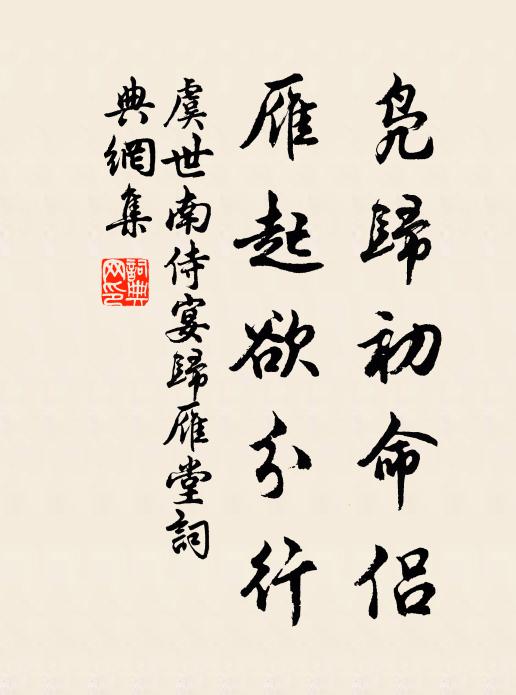 凫歸初命侣
雁起欲分行
虞世南侍宴歸雁堂詞
典網集
詞典网印